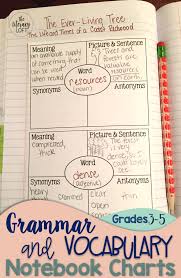 the
Literacy
LOFT
The Ever-Living Tree
The Life and Times of a Coast Redwood
Meaning
an available supply
of something that
can be used
when
needed
Picture & Sentence
Trees and
forests are
valuable
resources
on earth.
Word
resources
(noun)
Synonyms
Antonyms
Meaning
Picture & Sentence
thick
Word
dense
(adjective)
Synonyms
Antonyms
Grades 3-5
Grammar
and VOCABULARY
Notebook Charts